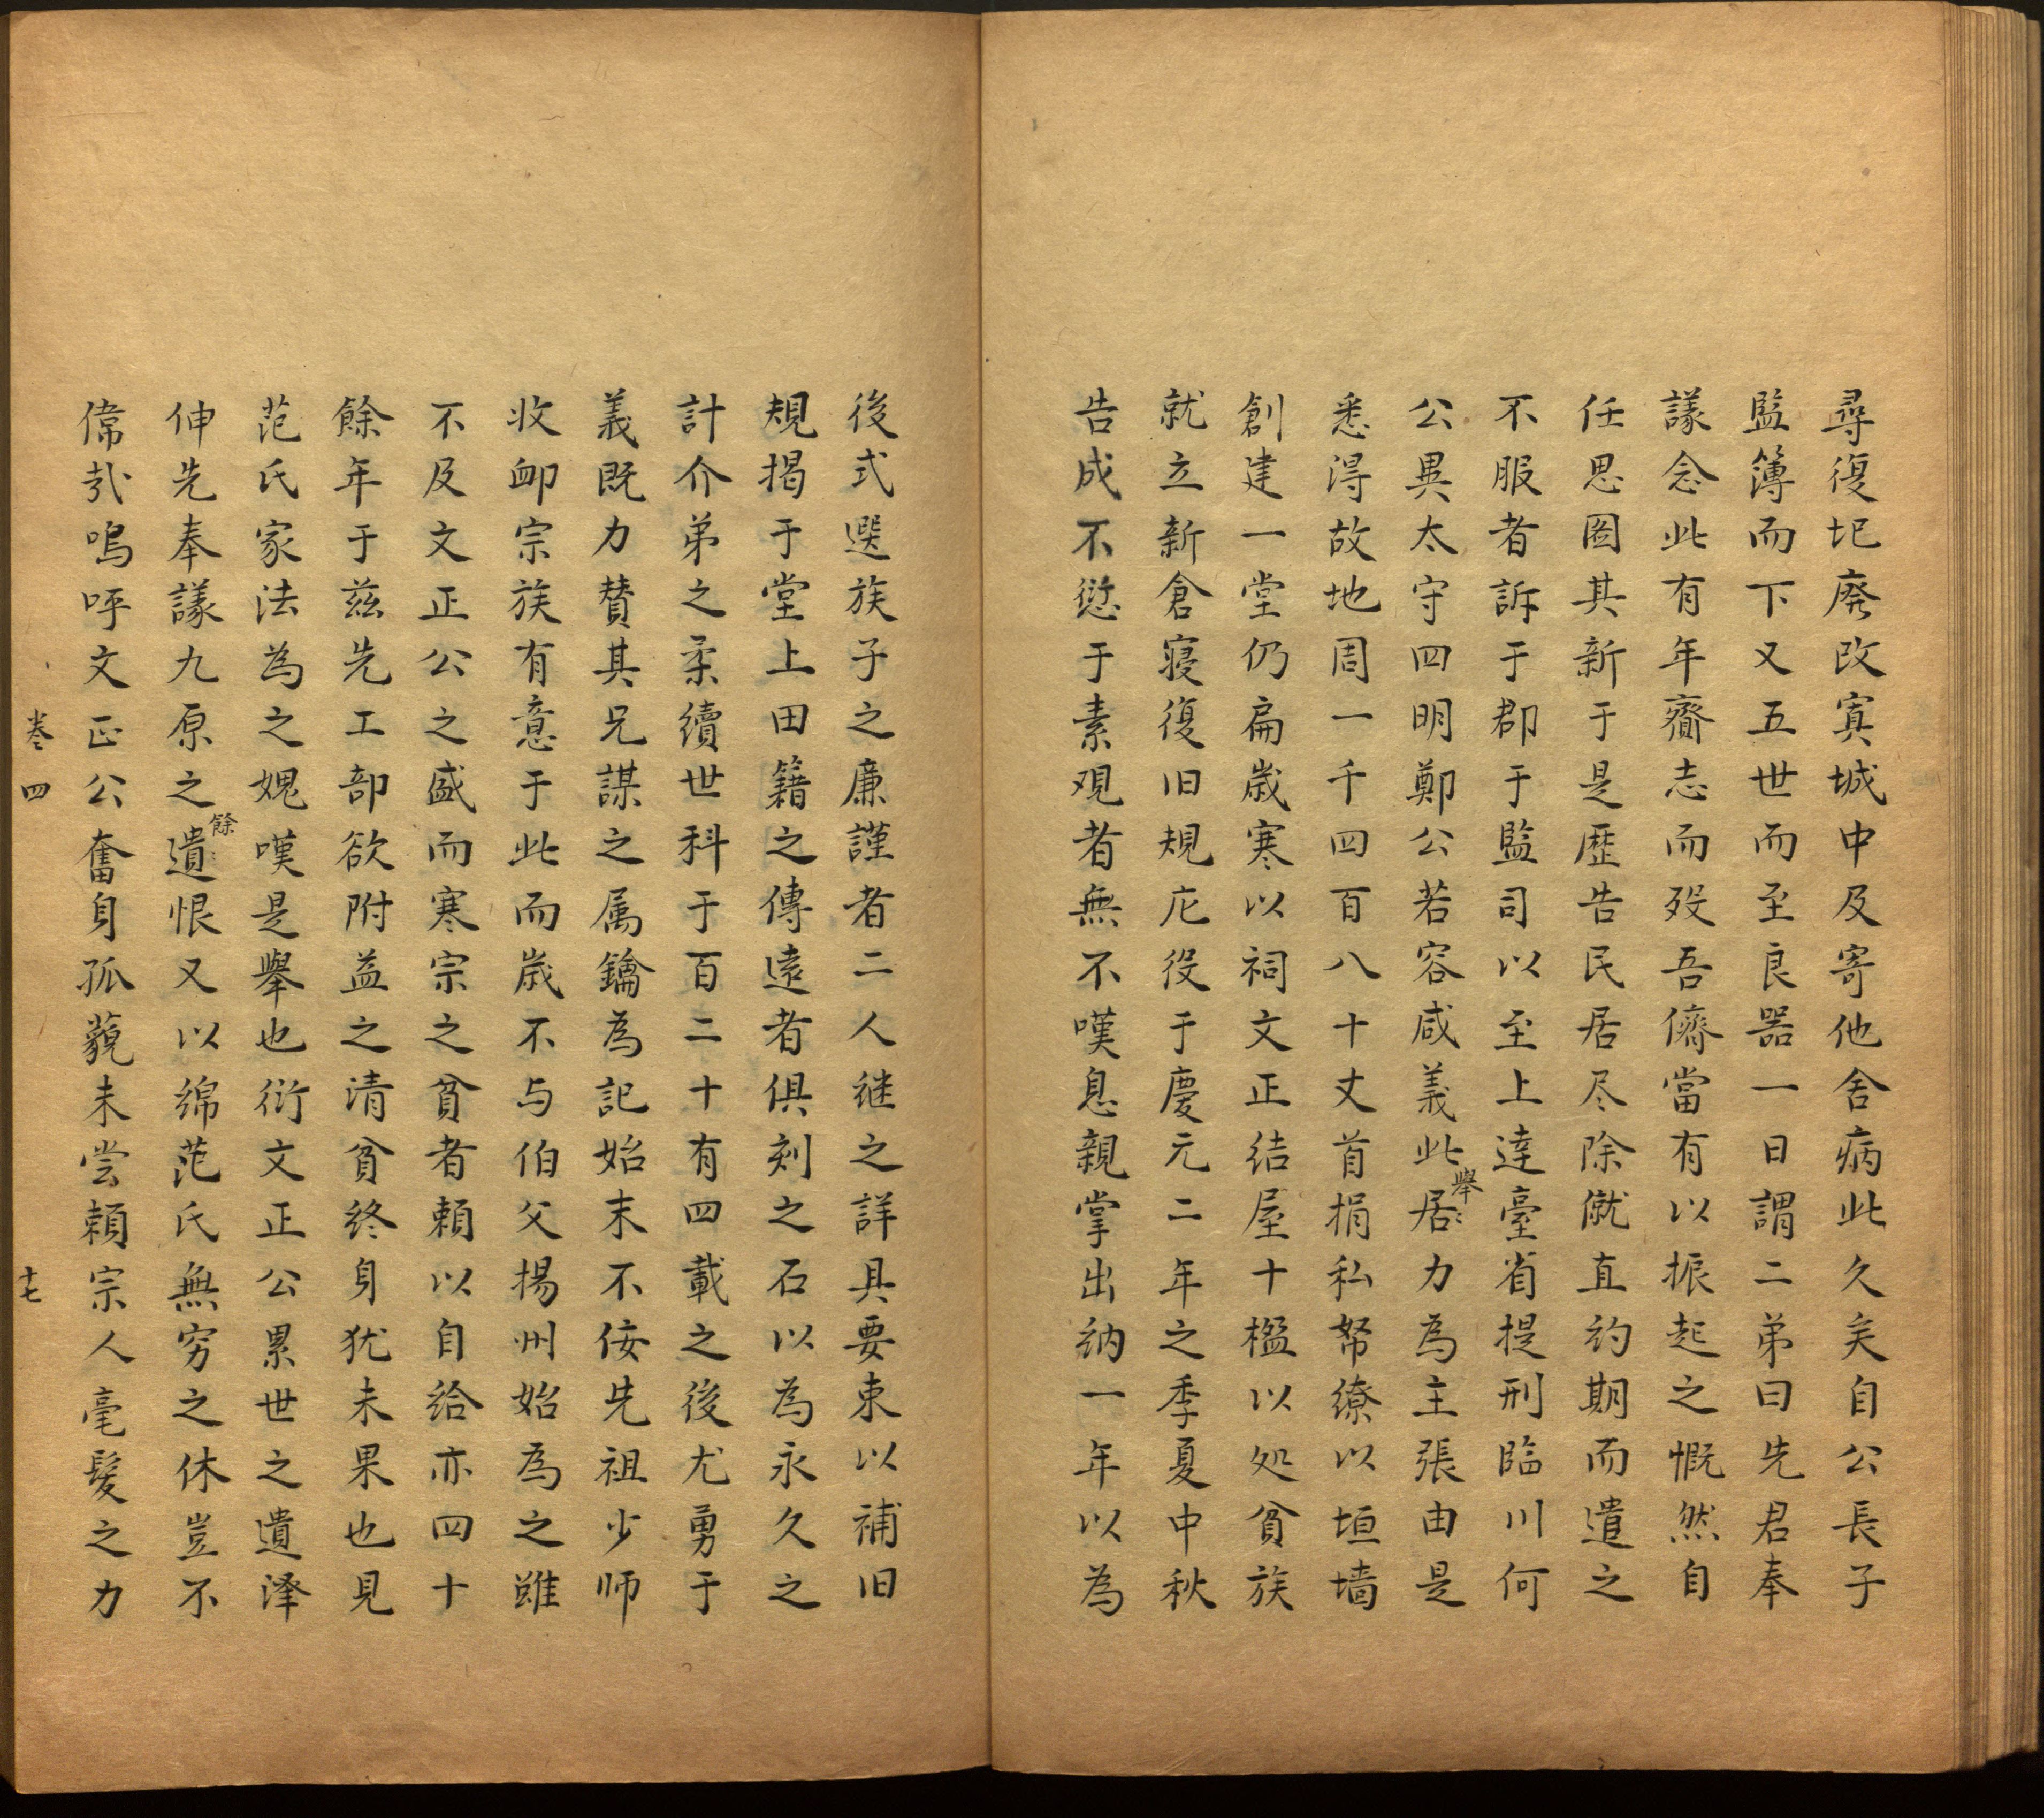 尋復圮廃改寘城中及寄他舍病此久矣自公長子
監簿而下又五世而至良器一日謂二弟曰先君奉
議念此有年齎志而歿吾儕當有以振起之慨然自
任思圖其新于是歷告民居尽除僦直約期而遣之
不服者訴于郡于監司以至上達臺省提刑臨川何
公異太守四明鄭公若容咸義此居舉力為主張由是
悉得故地周一千四百八十丈首捐私帑繚以垣墙
創建一堂仍扁歲寒以祠文正結屋十楹以処貧族
就立新倉寢復旧規庀役于慶元二年之季夏中秋
告成不愆于素观者無不嘆息親掌出納一年以為
後式選族子之廉謹者二人継之詳具要束以補旧
規揭于堂上田籍之傳遠者俱刻之石以為永久之
計介弟之柔續世科于百二十有四載之後尤勇于
義既力賛其兄謀之属鑰為記始末不佞先祖少师
收卹宗族有意于此而歲不与伯父揚州始為之雖
不及文正公之盛而寒宗之貧者頼以自給亦四十
餘年于兹先工部欲附益之清貧終身犹未果也見
范氏家法為之媿嘆是舉也衍文正公累世之遺泽
伸先奉議九原之遺餘恨又以綿范氏無穷之休豈不
偉㢤嗚呼文正公奮身孤藐未尝頼宗人毫髮之力
卷四 十七